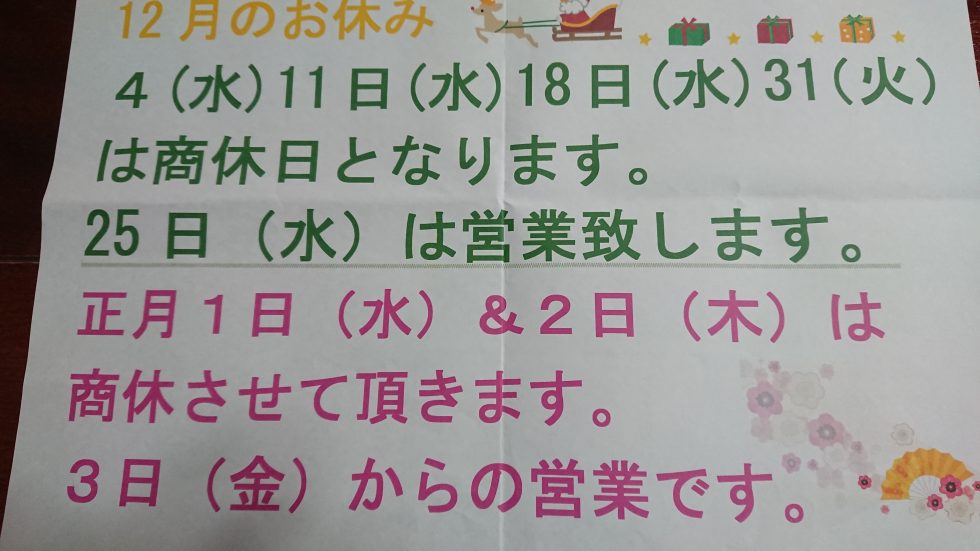 12月のお休み
４(水)11日(水)18日(水)31(火)
は商休日となります。
25日（水）は営業致します。
正月１日（水）＆２日（木）は
商休させて頂きます。
３日（金）からの営業です。